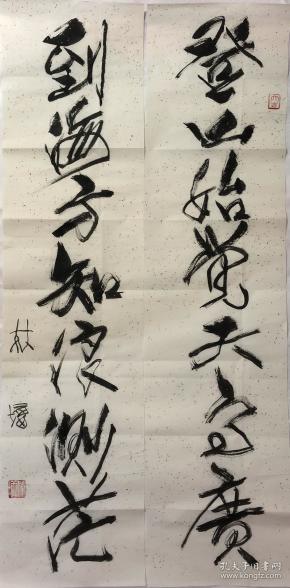 登山始觉天高廣
到海方知浪渺茫
林墉
孔夫子旧书网